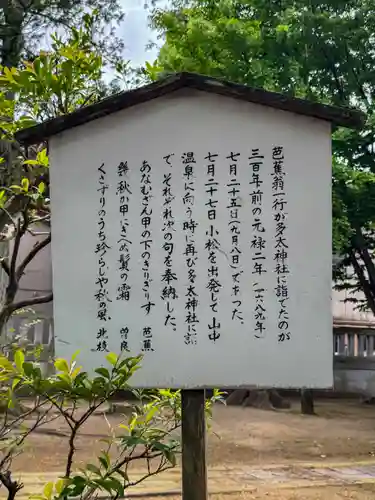 芭蕉翁一行が多太神社に詣でたのが
三百年前の元禄二年(一六八九年)
七月二十五日(九月八日)であった。
七月二十七日小松を出発して山中
温泉に向う時に再び多太神社に詣
で それぞれ次の句を奉納した。
あなむざん甲の下のきりぎりす 芭蕉
幾秋か甲にきへぬ鬢の霜 曽良
くさずりのうち珍らしや秋の風 北枝